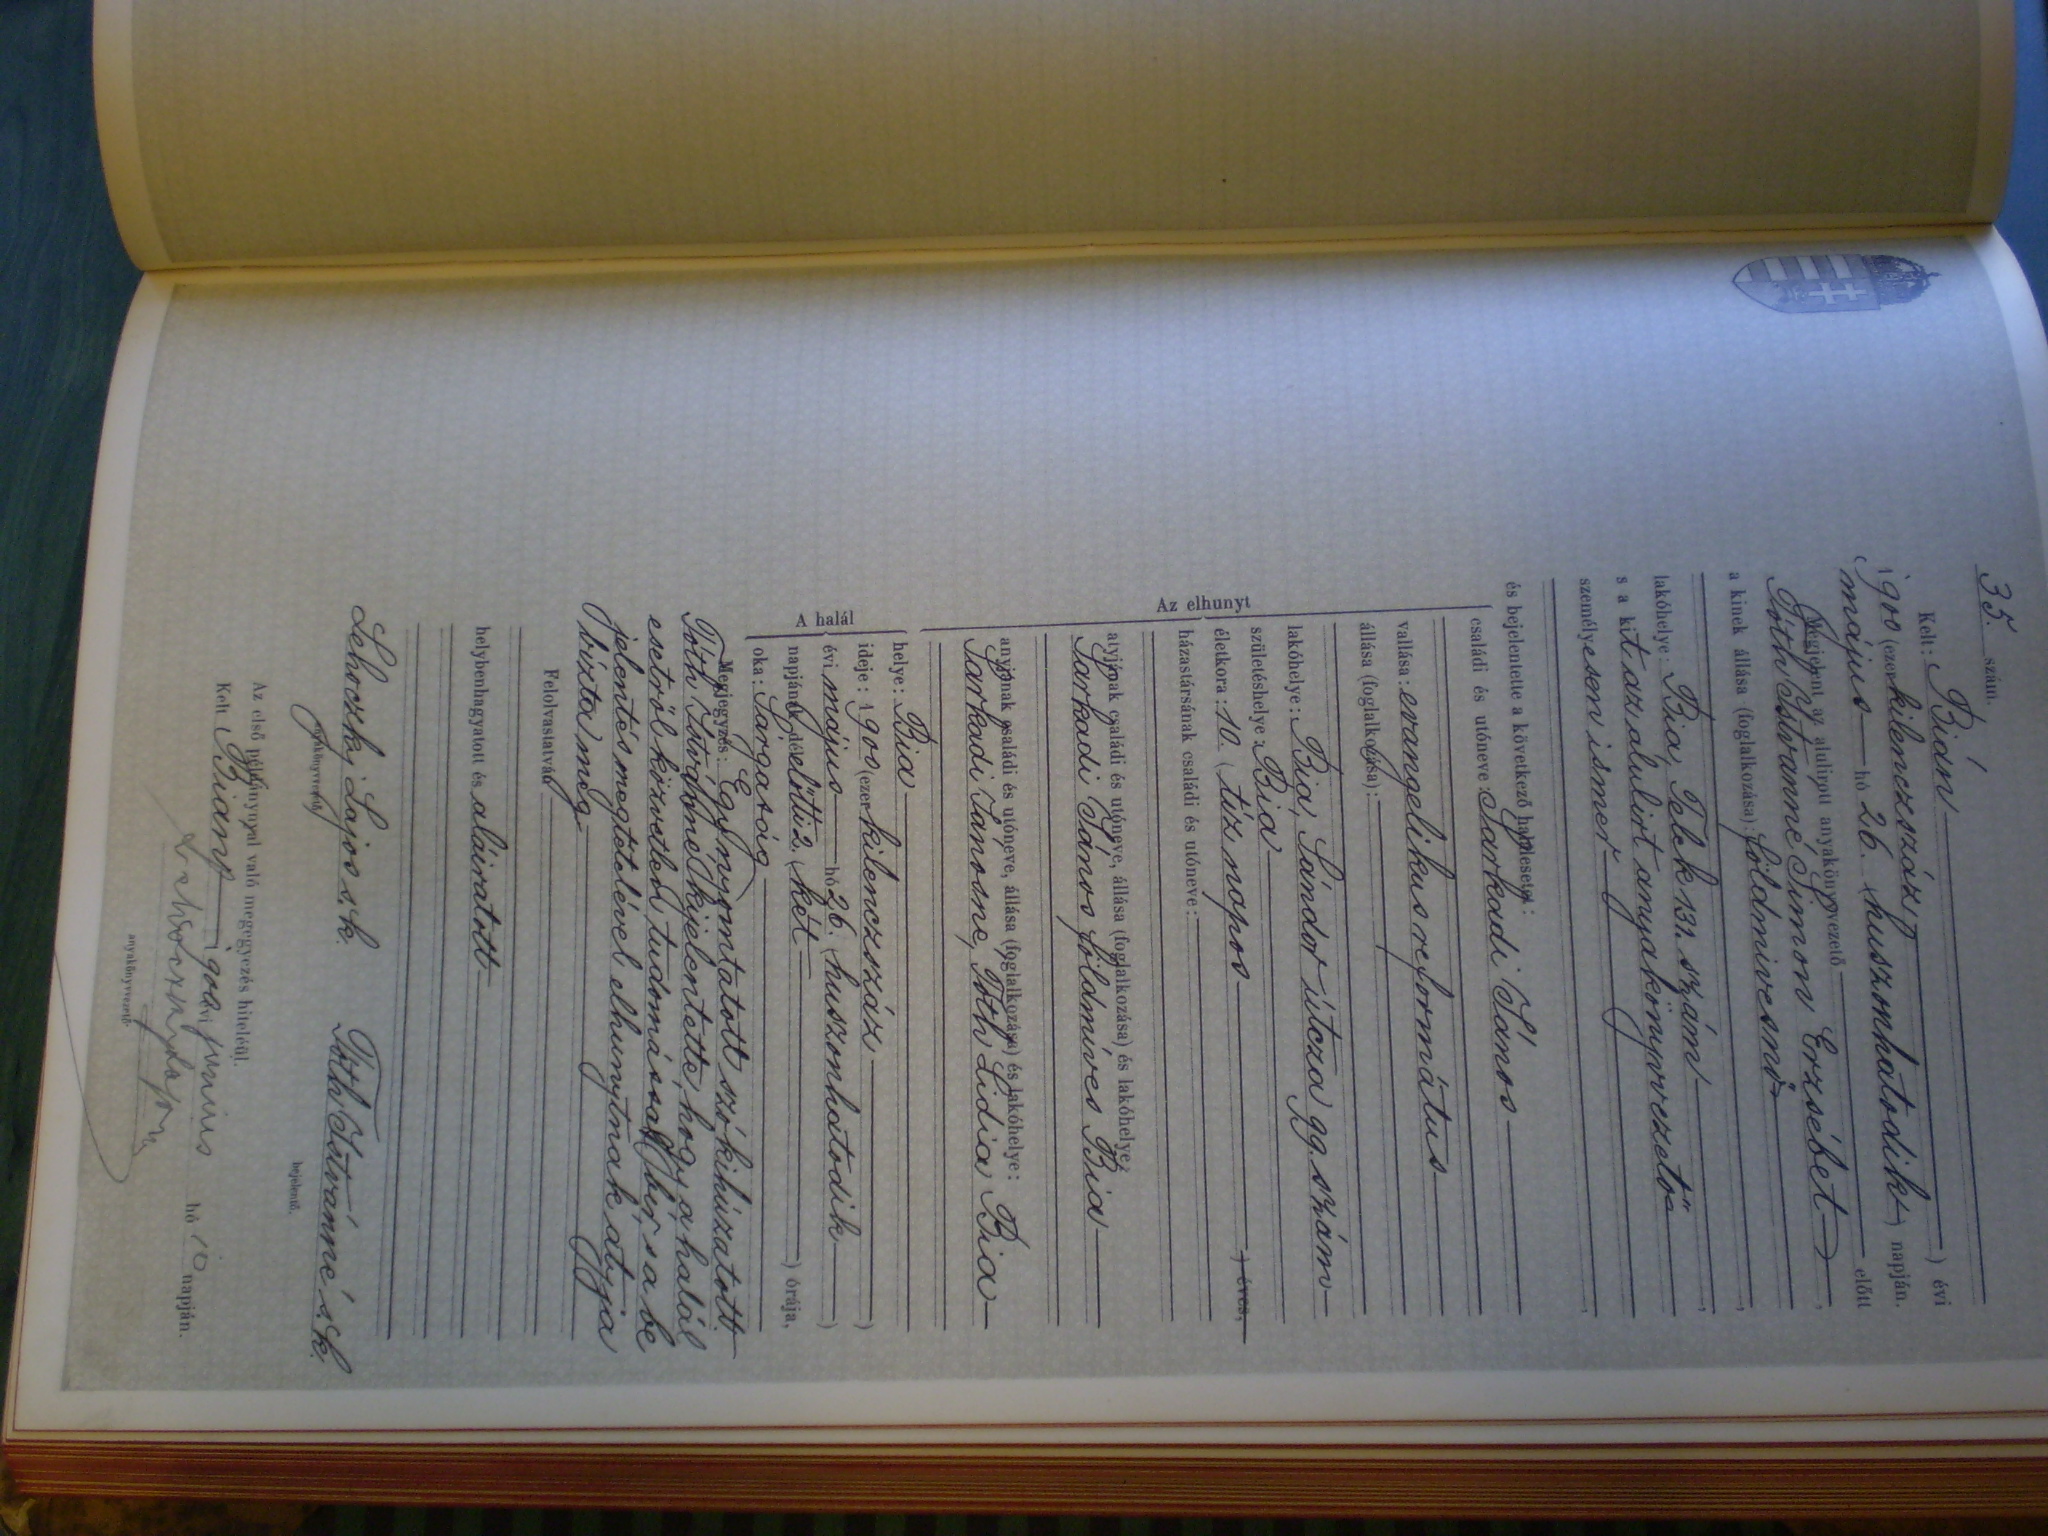 35. szám.
Kelt: Bián
1900 (ezerkilenczszáz) évi
május hó 26. (huszonhatodik) napján.
Megjelent az alulirott anyakönyvvezető előtt
Tóth Istvanné Simon Erzsébet,
a kinek állása (foglalkozása): földmivesnő,
lakóhelye: Bia, Telek 131. szám,
s a kit az alulirt anyakönyvvezető
személyesen ismer,
és bejelentette a következő halálesetet:
Az elhunyt
családi és utóneve: Sarkadi János
vallása: evangelikus református
állása (foglalkozása):
lakóhelye: Bia, Sándor útcza 99. szám
születéshelye: Bia
életkora: 10. (tíz napos) éves,
házastársának családi és utóneve:
atyjának családi és utóneve, állása (foglalkozása) és lakóhelye:
Sarkadi János földmíves Bia
anyjának családi és utóneve, állása (foglalkozása) és lakóhelye:
Sarkadi Janosne, Tóth Lidia Bia
A halál
helye: Bia
ideje: 1900 (ezerkilenczszáz)
évi május hó 26. (huszonhatodik)
napján délelőtti 2. (két) órája,
oka: Sárgaság
Megjegyzés: Egy nyomtatott szó kihúzatott.
Tóth Istvánné kijelentette, hogy a halál
esetről közvetlen tudomással bir, s a be
jelentés megtételével elhunytnak atyja
bízta meg.
Felolvastatván
helybenhagyatott és aláiratott
Lehoczky Lajos s. k. Tóth Istvanné s. k.
anyakönyvvezető. bejelentő.
Az első példánynyal való megegyezés hiteléül.
Kelt Bián, 1900 évi junius hó 10 napján.
Lehoczky Lajos
anyakönyvvezető.